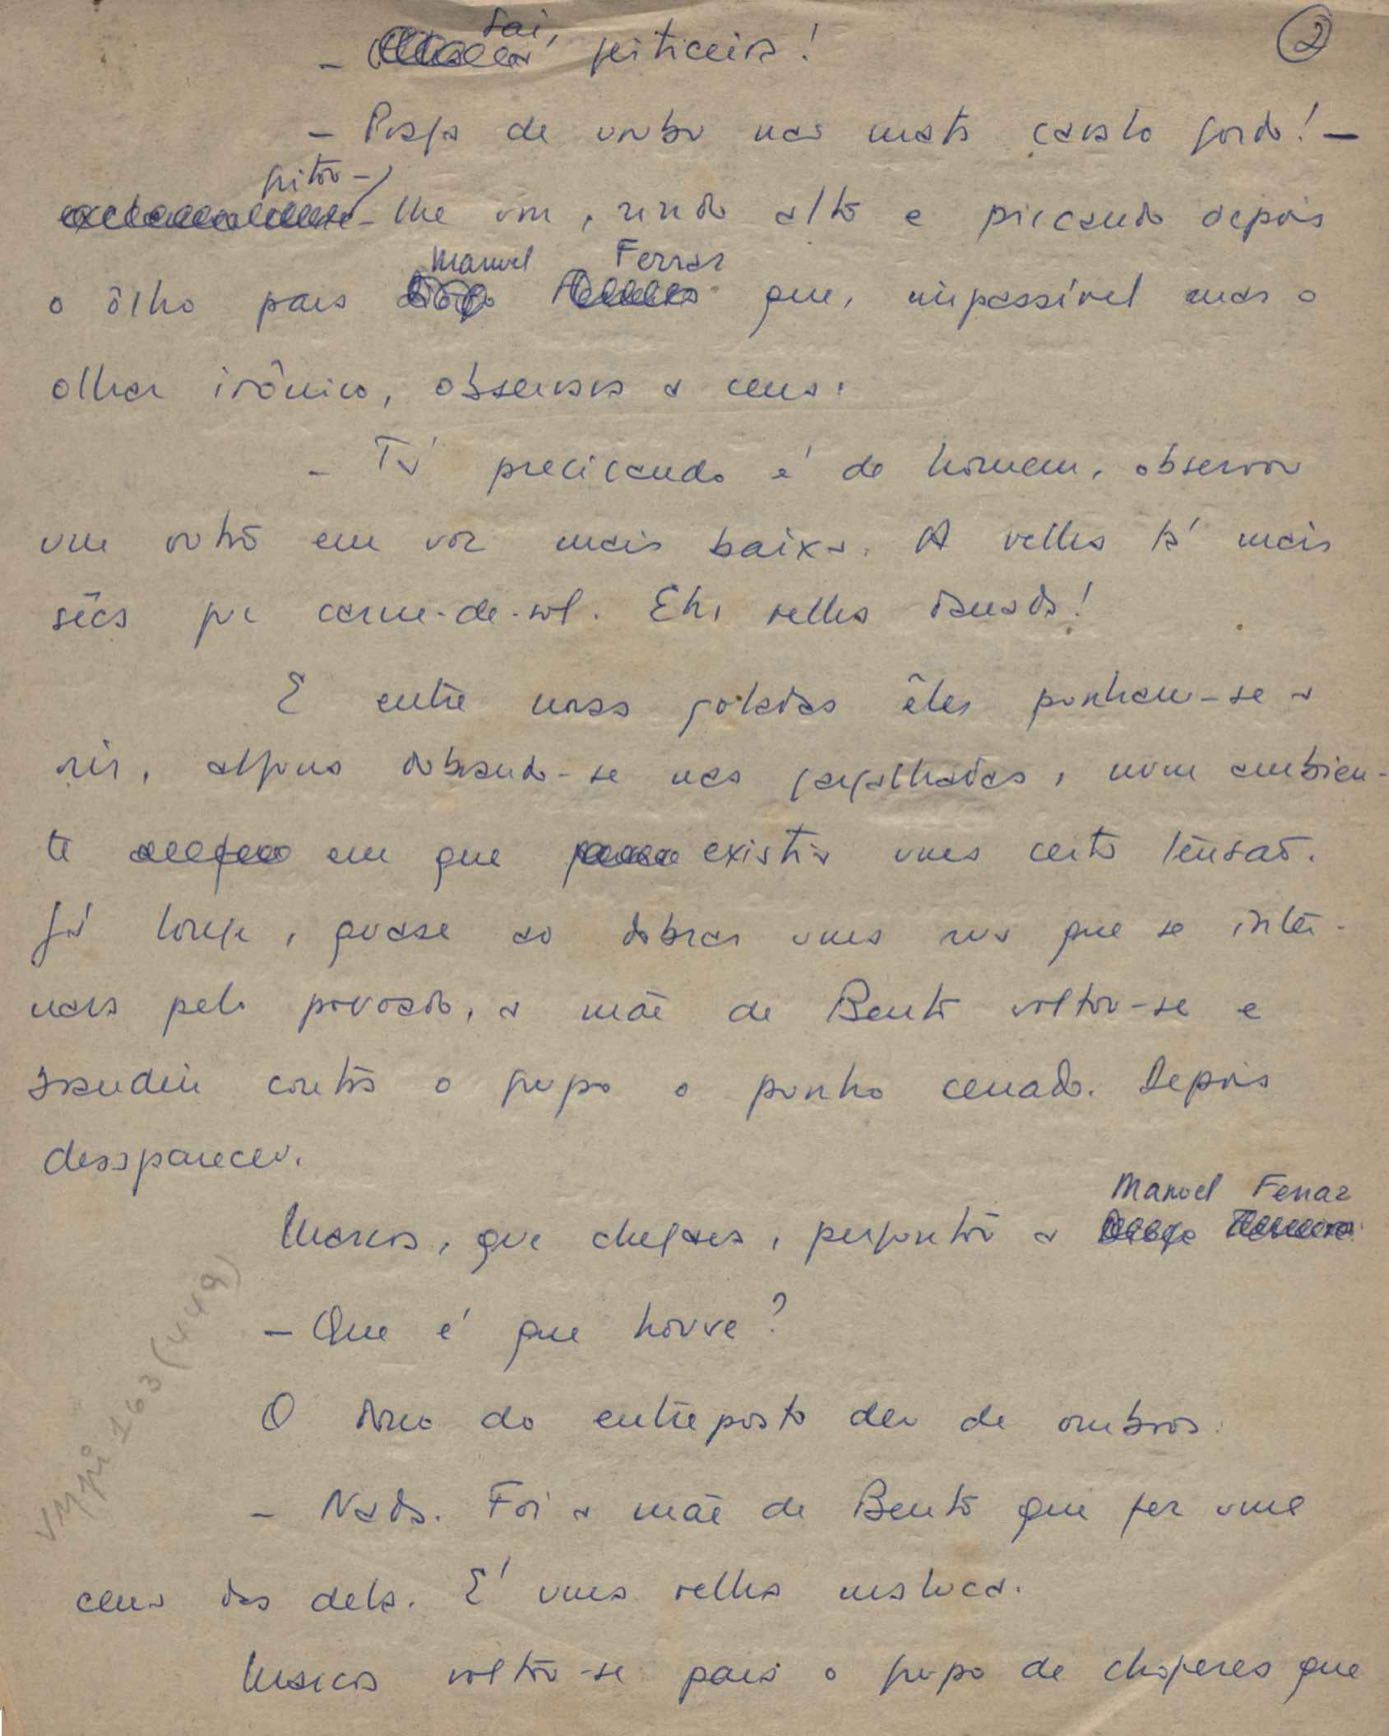 ②
Sai,
- feiticeira!
- Praga de urubu não mata cavalo gordo! -
gritou-
lhe um, rindo alto e piscando depois
Manoel Ferraz
o ôlho para que, impassível mas o
olhar irônico, observava a cena.
- Tá precisando é de homem, observou
um outro em voz mais baixa. A velha tá mais
sêca que carne-de-sol. Eh, velha danada!
E entre novas goladas êles punham-se a
rir, alguns dobrando-se nas gargalhadas, num ambien-
te em que existia uma certa tensão.
Já longe, quase ao dobrar uma rua que se inter-
nava pelo povoado, a mãe de Bento voltou-se e
sacudiu contra o grupo o punho cerrado. Depois
desapareceu.
Manoel Ferraz
Marcos, que chegara, perguntou a
- Que é que houve?
O dono do entreposto deu de ombros.
- Nada. Foi a mãe de Bento que fez uma
cena das dela. É uma velha maluca.
Marcos voltou-se para o grupo de choferes que
VMpi 163 (449)